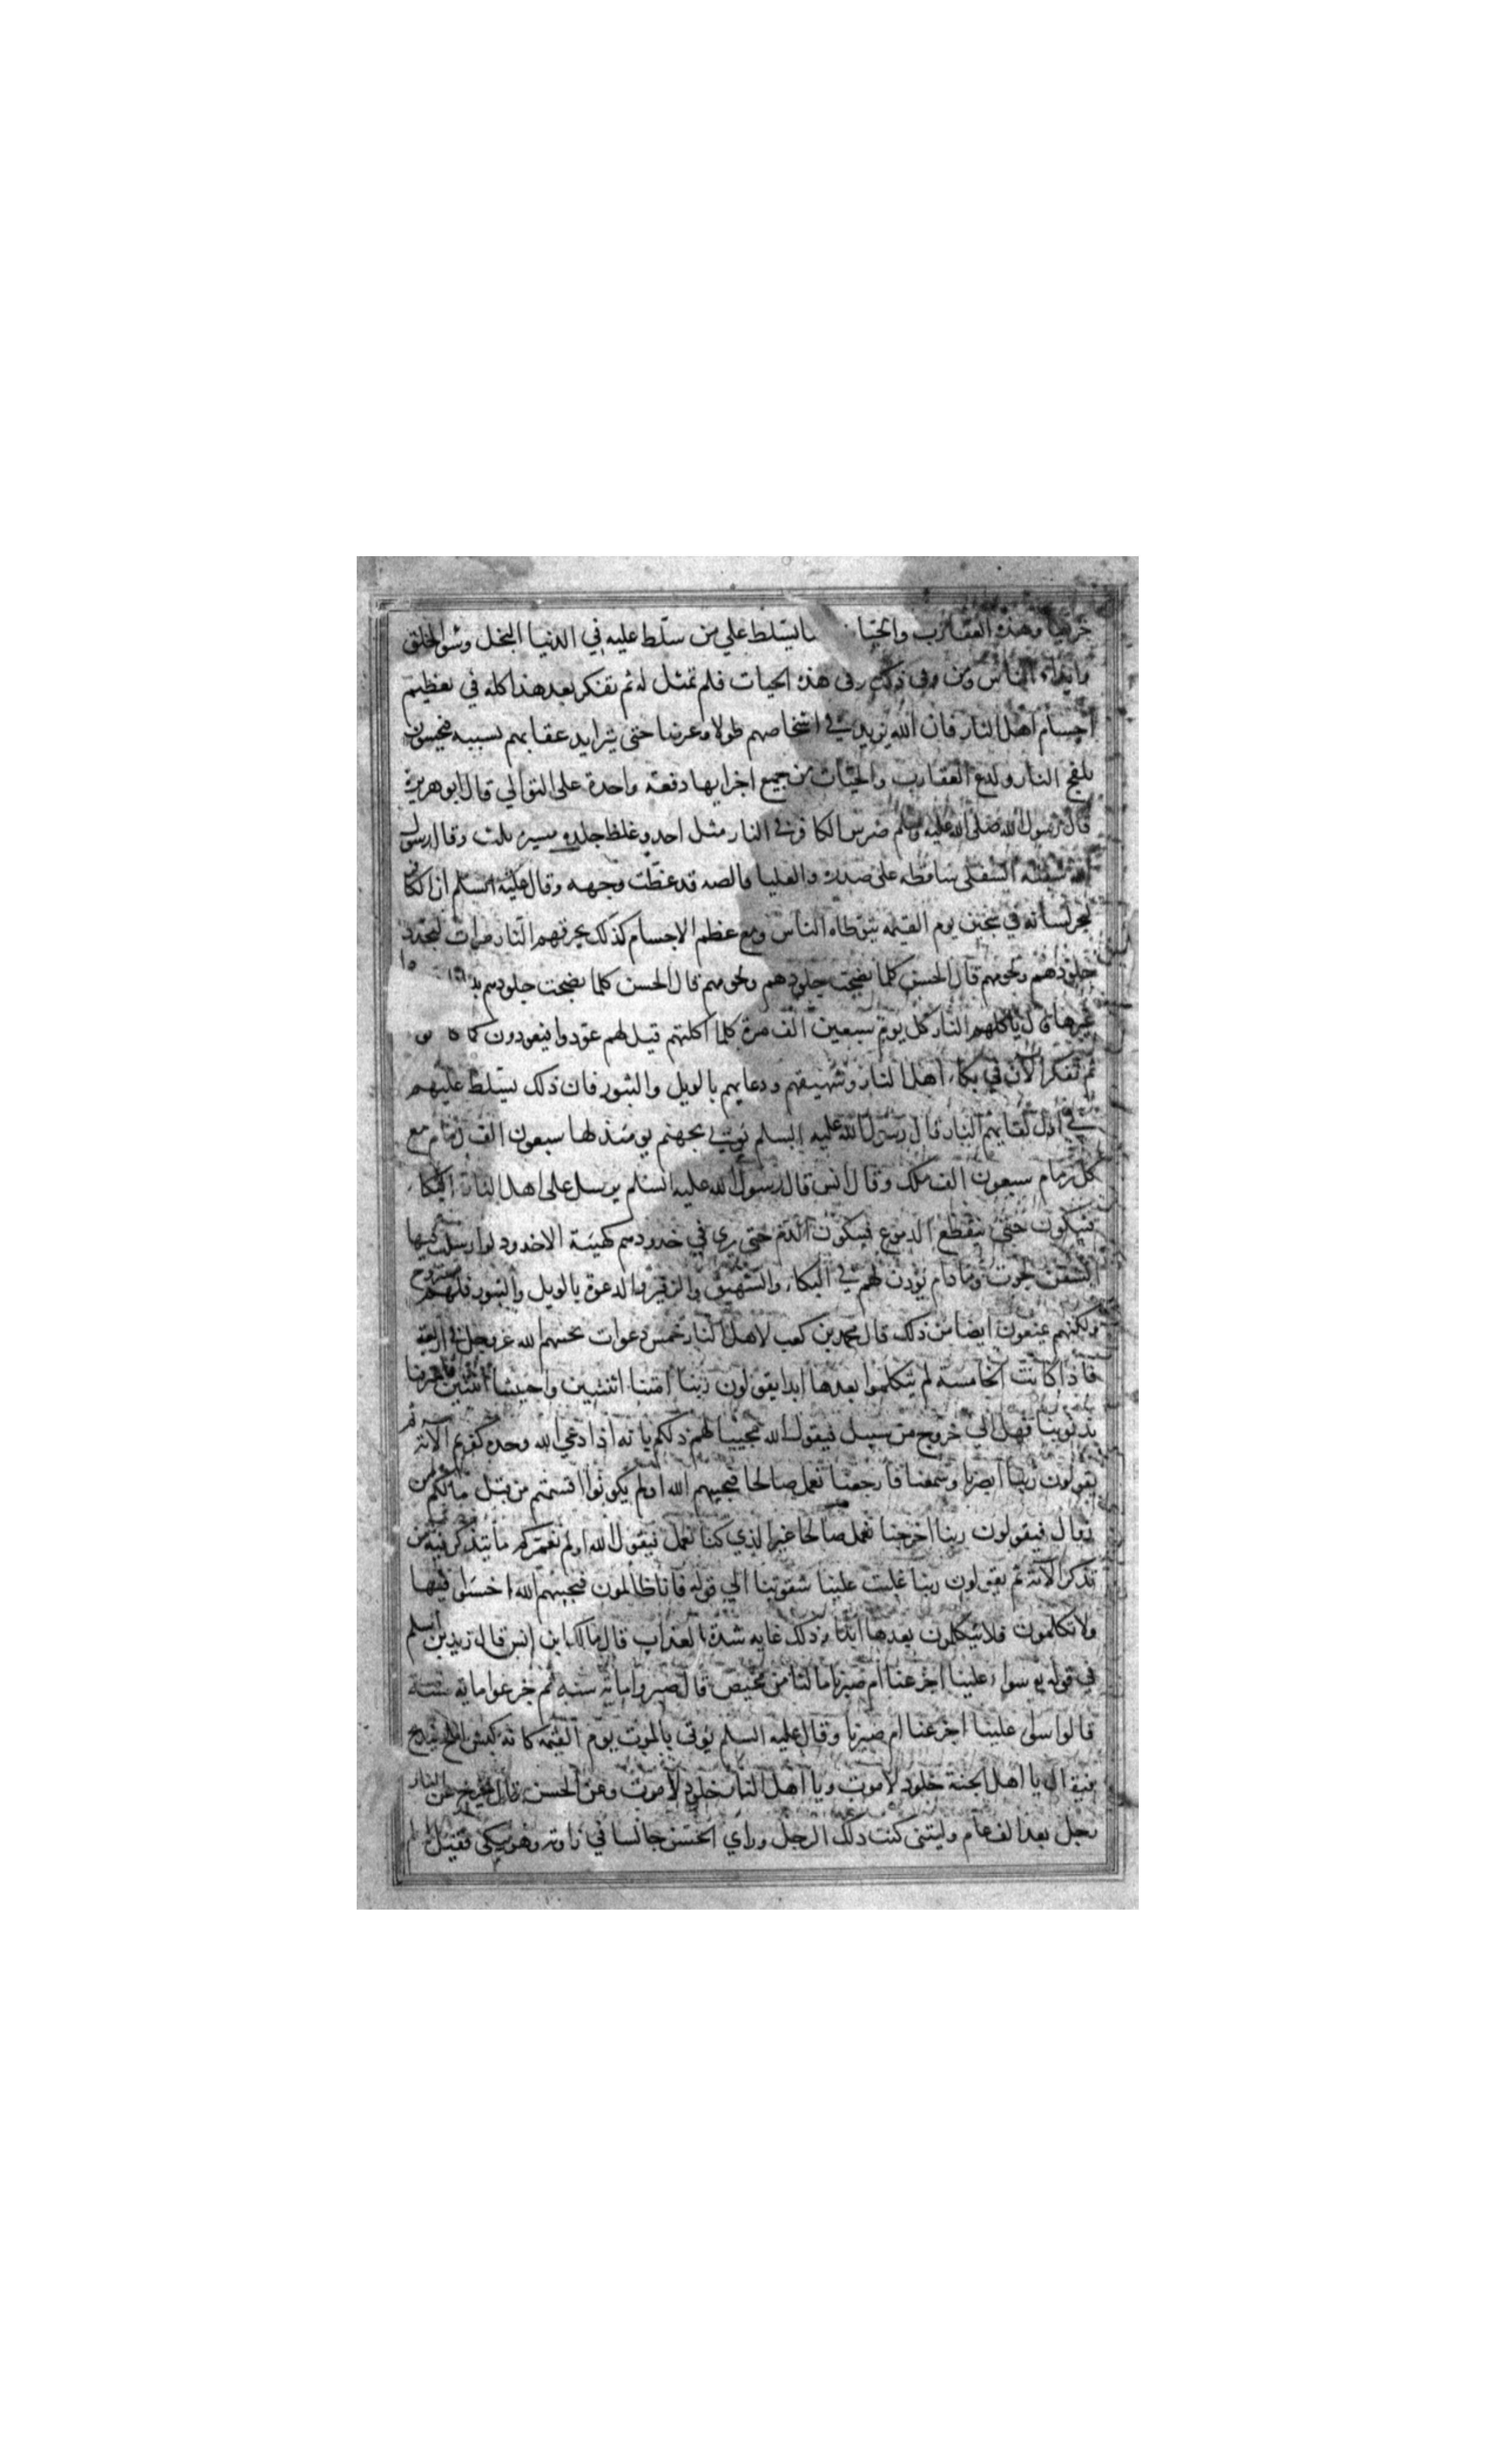 خريفا وهذه العقارب والحيات انما تسلط علي من سلط عليه في الدنيا البخل وسو الخلق
وايذاء الناس ومن وقى ذلك وقى هذه الحيات فلم تمثل له ثم تفكر بعد هذا كله في تعظيم
اجسام اهل النار فان الله يزيد في اشخاصهم طولا وعرضا حتى يتزايد عقابهم بسببه فيحسون
بلفح النار ولدغ العقارب والحيات من جميع اجزايها دفعة واحدة على التوالي قال ابو هريرة
قال رسول الله صلى الله عليه وسلم ضرس الكافر في النار مثل احد وغلظ جلده مسيرة ثلث وقال رسول
الله شفته السفلى ساقطه على صدره والعليا قالصه قد غطت وجهه وقال عليه السلم ان الكافر
ليجر لسانه في سجين يوم القيمه يتوطاه الناس ومع عظم الاجسام كذلك يحرقهم النار مرات فتجدد
جلودهم ولحومهم قال الحسن كلما نضجت جلودهم ولحومهم قال الحسن كلما نضجت جلودهم
غيرها قال ياكلهم النار كل يوم سبعين الف مرة كلما اكلتهم قيل لهم عودوا فيعودون كما كانوا
ثم تفكر الآن في بكاء اهل النار وشهيقهم ودعايهم بالويل والثبور فان ذلك يسلط عليهم
في اول لقايهم النار قال رسول الله عليه السلم يوتي بجهنم يومئذ لها سبعون الف زمام مع
كل زمام سبعون الف ملك وقال انس قال رسول الله عليه السلم يرسل على اهل النار البكاء
فيبكون حتى ينقطع الدموع فيبكون الدم حتى يري في خدودهم كهيئة الاخدود لو ارسلت فيها
السفن لجرت وما دام يؤذن لهم في البكاء والشهيق والزفير والدعوة بالويل والثبور فلهم مستروح
ولكنهم يمنعون ايضا من ذلك قال محمد بن كعب لاهل النار خمس دعوات يجيبهم الله عز وجل في اربعه
فاذا كانت الخامسة لم يتكلموا بعدها ابدا يقولون ربنا امتنا اثنتين واحييتنا اثنتين فاعترفنا
بذنوبنا فهل الي خروج من سبيل فيقول الله مجيبا لهم ذلكم بانه اذا دعي الله وحده كفرتم الآية ثم
يقولون ربنا ابصرنا وسمعنا فارجعنا نعمل صالحا فيجيبهم الله اولم يكونوا اقسمتم من قبل مالكم من
زوال فيقولون ربنا اخرجنا نعمل صالحا غير الذي كنا نعمل فيقول الله اولم نعمركم ما يتذكر فيه من
تذكر الآية ثم يقولون ربنا غلبت علينا شقوتنا الي قوله فانا ظالمون فيجيبهم الله اخسؤا فيها
ولا تكلمون فلا يتكلمون بعدها ابدا وذلك غايه شدة العذاب قال مالك ابن انس قال زيد بن اسلم
في قوله سواء علينا اجزعنا ام صبرنا ما لنا من محيص قال صبروا ماية سنه ثم جزعوا ماية سنة
قالوا سواء علينا اجزعنا ام صبرنا وقال عليه السلم يوتى بالموت يوم القيمه كانه كبش املح فيذبح
فيقال يا اهل الجنة خلود لا موت ويا اهل النار خلود لا موت وعن الحسن قال يخرج من النار
رجل بعد الف عام وليتني كنت ذلك الرجل وراي الحسن جالسا في زاوية وهو يبكي فقيل